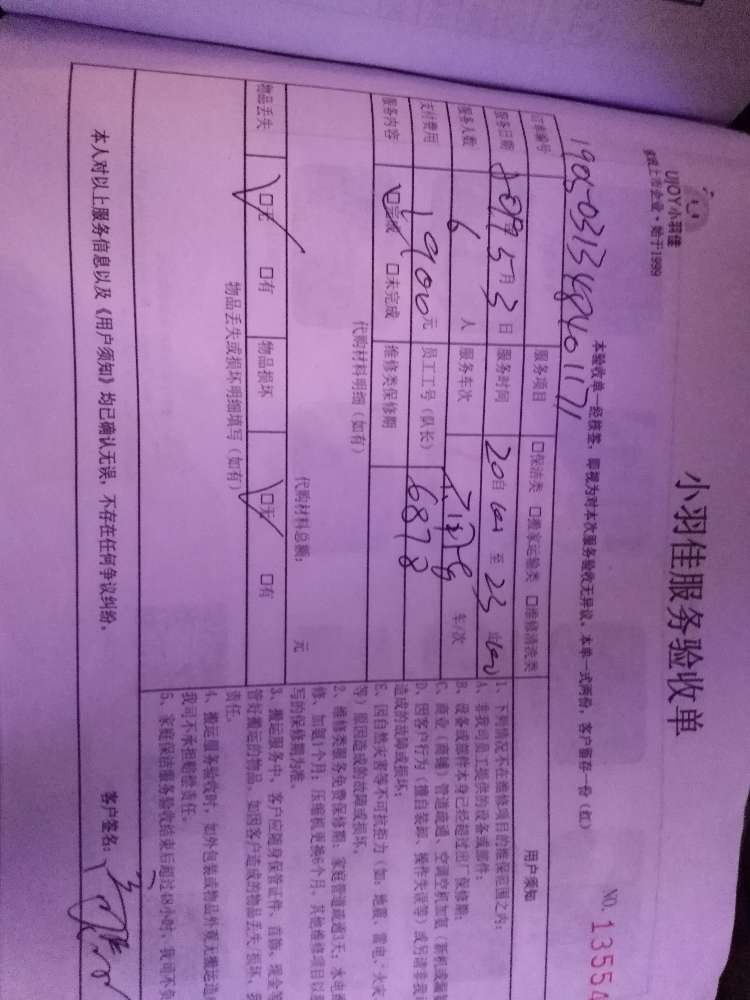 小羽佳服务验收单
UJOY小羽佳
家政上市企业·始于1999
NO.1355
本验收单一经核签，即视为对本次服务验收无异议。本单一式两份，客户留存一份（红）
订单编号 1905031348401171 服务项目 □保洁类 □搬家运输类 □维修清洗类
服务日期 2019 5月3日 服务时间 20 至 23
服务人数 6人 服务车次 车/次
支付费用 1900元 员工工号（队长） 6878
服务内容 ☑完成 □未完成 维修类保修期
代购材料明细（如有）
代购材料总额： 元
物品丢失 ☑无 □有 物品损坏 ☑无 □有
物品丢失或损坏明细填写（如有）
用户须知
1、下列情况不在维修项目的维保范围之内：
A、非我司员工提供的设备或部件；
B、设备或部件本身已经超过出厂保修期；
C、商业（商铺）管道疏通、空调空机加氨（新机或漏
D、因客户行为（擅自装卸、操作失误等）或另请非我
造成的故障或损坏；
E、因自然灾害等不可抗拒力（如：地震、雷电、火灾
等）原因造成的故障或损坏。
2、维修类服务免费保修期：家庭管道疏通3天；水电维
修、加氨1个月；压缩机更换6个月，其他维修项目以
写的保修期为准。
3、搬运服务中，客户应随身保管证件、首饰、现金等
管好搬运的物品，如因客户造成的物品丢失、损坏，我
责任。
4、搬运服务验收时，如外包装或物品外观无搬运造
我司不承担赔偿责任。
5、家庭保洁服务验收结束后超过48小时，我司不负
本人对以上服务信息以及《用户须知》均已确认无误，不存在任何争议纠纷。 客户签名：